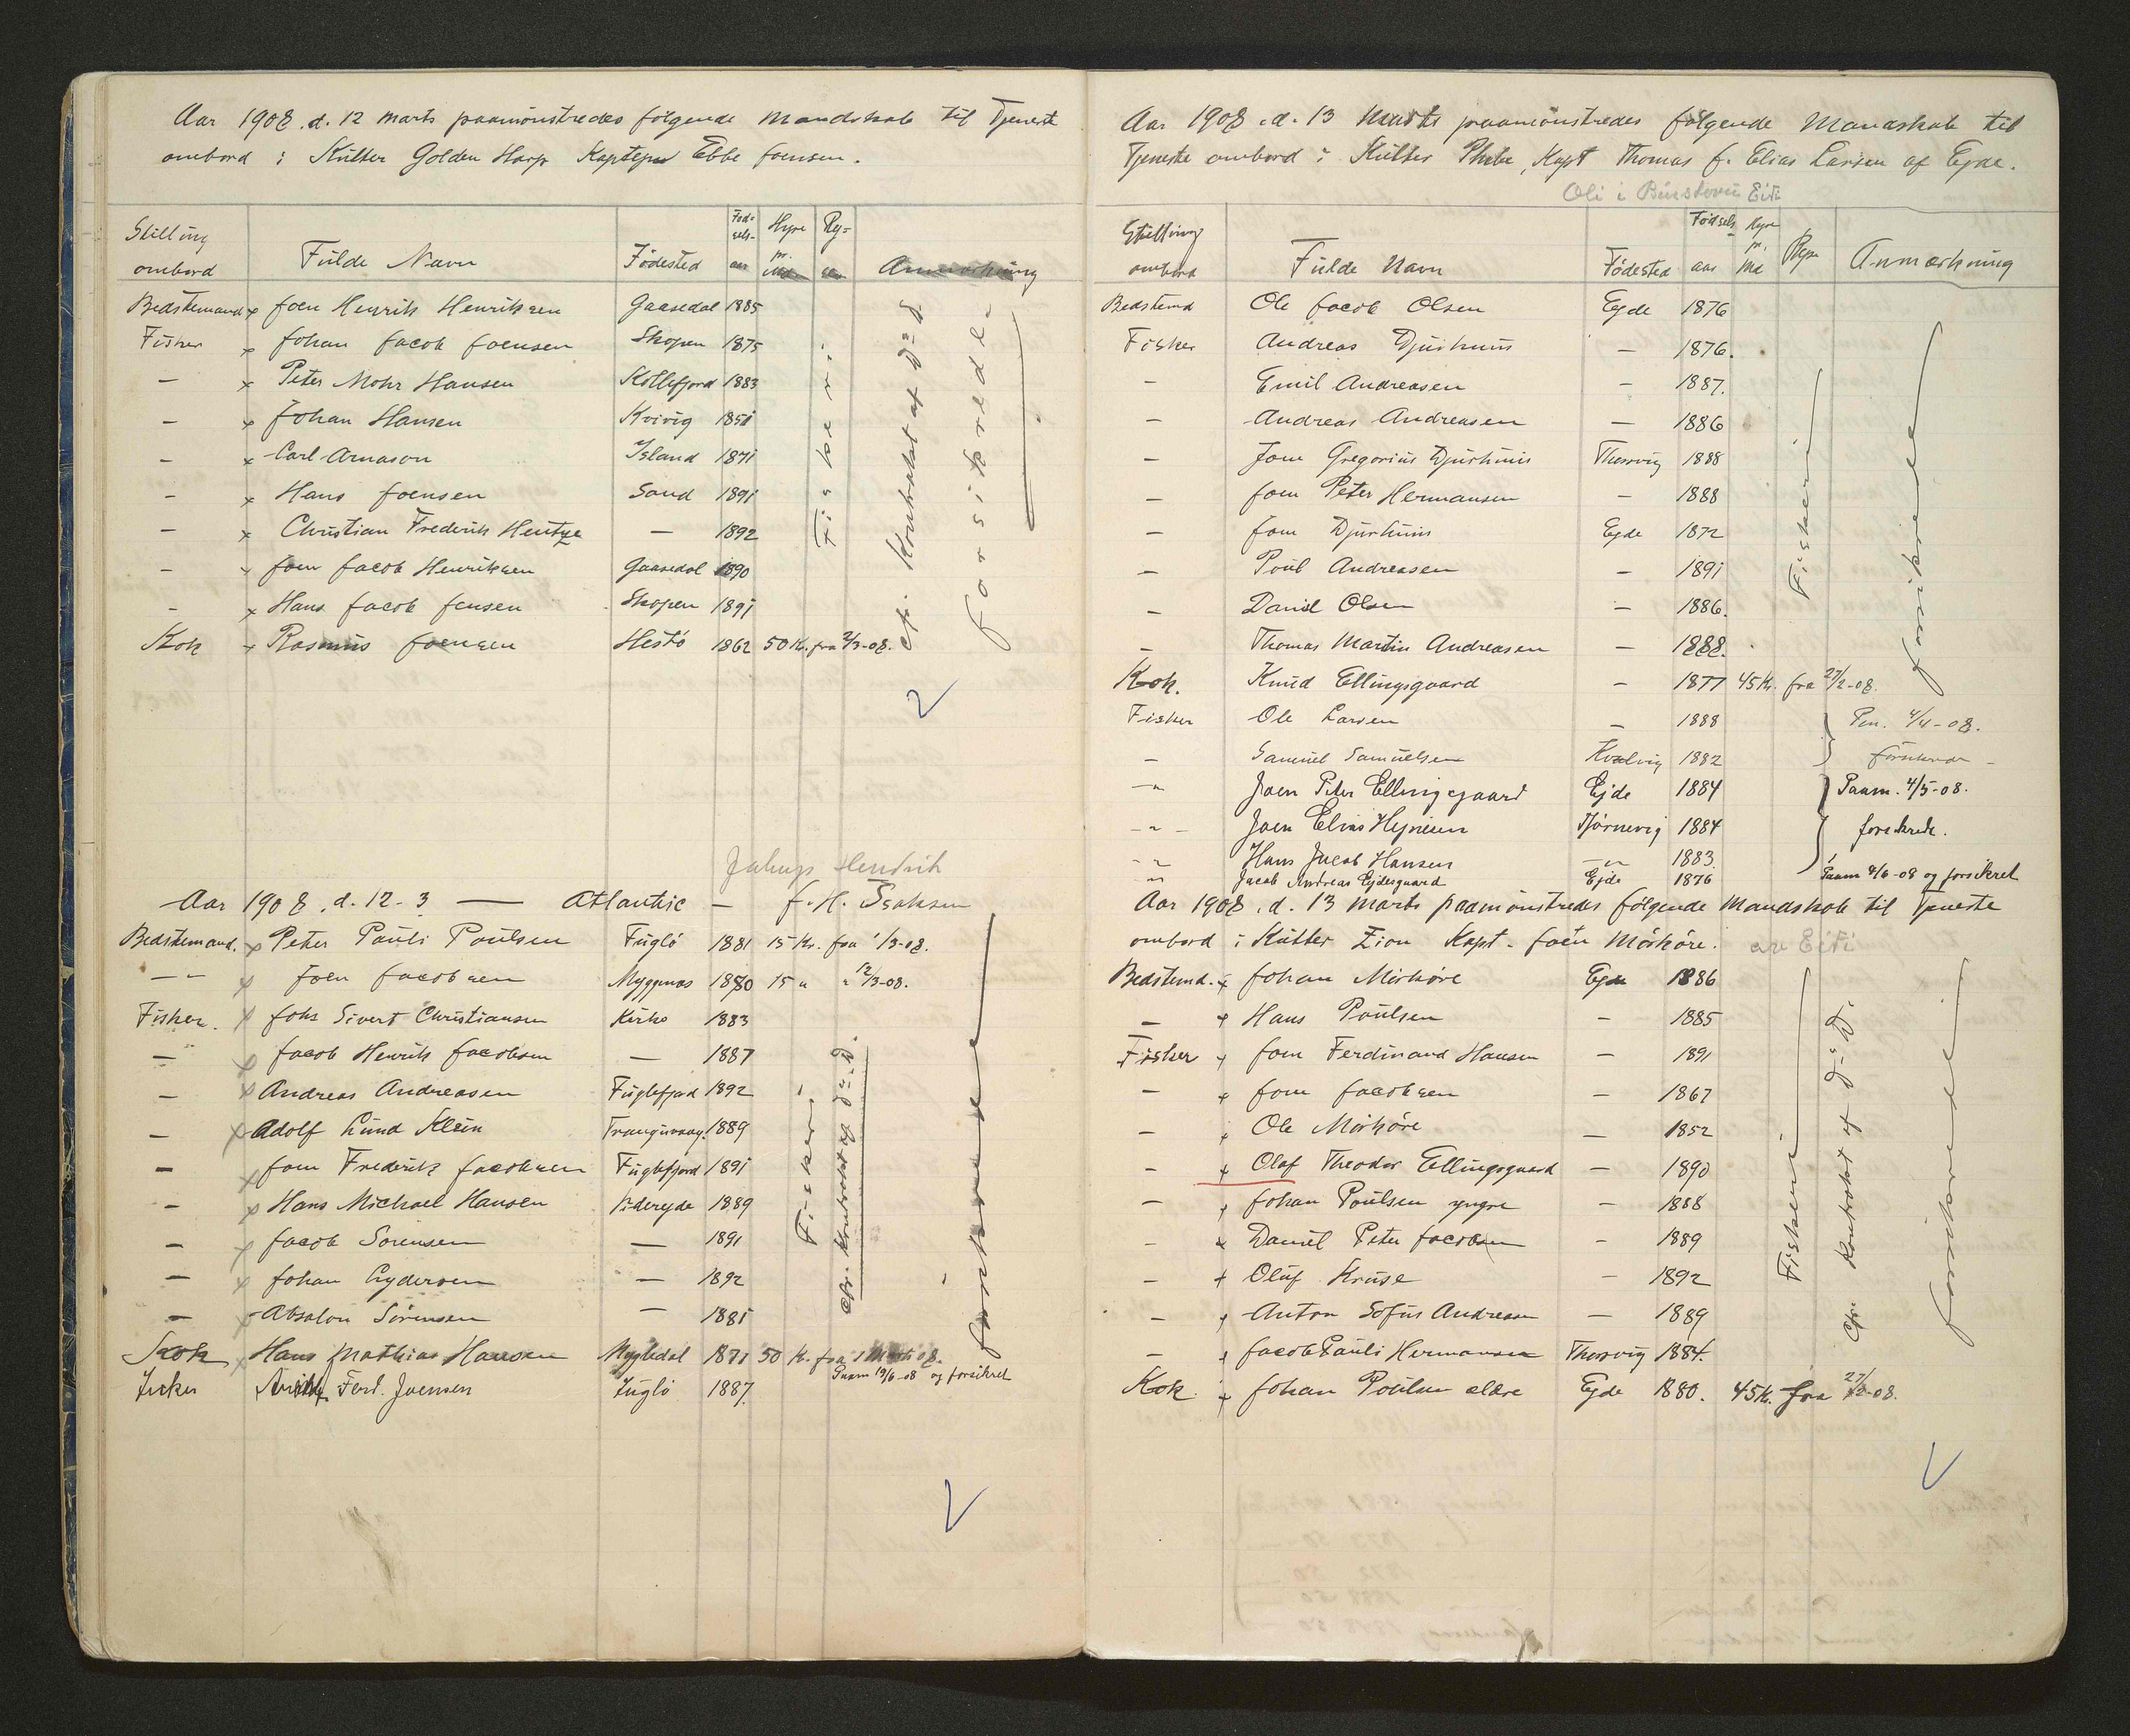 Aar 1908. d. 12 marts paamönstredes følgende Mandskab til Tjeneste
ombord i Kutter Golden Harp Kaptejn Ebbe Joensen.
Stilling ombord Fulde Navn Födested Födselsaar Hyre pr. Md. Rejsen Anmærkning
Bedstemand x Joen Henrik Henriksen Gaasedal 1885
Fisker x Johan Jacob Joensen Skopen 1875
— x Peter Mohr Hansen Kollefjord 1883
— x Johan Hansen Kvivig 1851
— x Carl Arnason Island 1871
— x Hans Joensen Sand 1891
— x Christian Frederik Hentze — 1892
— x Joen Jacob Henriksen Gaasedal 1890
— x Hans Jacob Jensen Skopen 1891
Kok x Rasmus Joensen Hestö 1862 50 Kr. fra 2/3-08.
Fiskeri
cfr. Kontrakt af D:D.
Forsikrede
Jákup Hendrik
Aar 1908. d. 12-3 — Atlantic — J. H. Isaksen
Bedstemand. x Peter Pauli Poulsen Fuglö 1881 15 Kr. fra 1/3-08.
— " — x Joen Jacobsen Myggenæs 1880 15 " " 12/3-08.
Fisker. x Johs Sivert Christiansen Kirke 1883
— x Jacob Henrik Jacobsen — 1887
— x Andreas Andreasen Fuglefjord 1892
— x Adolf Lund Klein Trangisvaag 1889
— x Joen Frederik Jacobsen Fuglefjord 1891
— x Hans Michael Hansen Viderejde 1889
— x Jacob Sörensen — 1891
— x Johan Gydersen — 1892
— x Absalon Sörensen — 1881
Kok x Hans Mathias Hansen Mygledal 1871 50 Kr. fra 1 Marts 08.
Fisker Ferd. Joensen Fuglö 1887 Paam 19/6-08 og forsikret
Fiskeri
cfr. Kontrakt af D:D.
forsikrede
Aar 1908. d. 13 Marts paamönstredes følgende Mandskab til
Tjeneste ombord i Kutter Phebe, Kapt Thomas J. Elias Larsen af Ejde.
Oli i Bústovu Eiði
Stilling ombord Fulde Navn Födested Födsels aar Hyre pr. Md Rejse Anmærkning
Bedstemd Ole Jacob Olsen Ejde 1876
Fisker Andreas Djurhuus — 1876.
— Emil Andreasen — 1887.
— Andreas Andreasen — 1886
— Joen Gregorius Djurhuus Thorsvig 1888
— Joen Peter Hermansen — 1888
— Joen Djurhuus Ejde 1872
— Poul Andreasen — 1891
— Daniel Olsen — 1886.
— Thomas Martin Andreasen — 1888.
Kok. Knud Ellingsgaard — 1877 45 Kr. fra 27/2-08.
Fisker Ole Larsen — 1888 Pm. 4/4-08.
— Samuel Samuelsen Kvalvig 1882 forsikrede
— " Joen Peter Ellingsgaard Ejde 1884 Paam. 4/5-08.
— " — Joen Elias Hejnesen Tjörnevig 1884 forsikrede.
— " Hans Jacob Hansen — " — 1883
— " Jacob Andreas Ejdesgaard Ejde 1876 Paam 4/6-08 og forsikret
Fiskeri
forsikrede
Aar 1908. d. 13 Marts paamönstredes følgende Mandskab til Tjeneste
ombord i Kutter Zion Kapt. Joen Mörköre. av Eiði
Bedstemd. x Johan Mörköre Ejde 1886
— x Hans Poulsen — 1885
Fisker x Joen Ferdinand Hansen — 1891
— x Joen Jacobsen — 1867
— x Ole Mörköre — 1852
— x Olaf Theodor Ellingsgaard — 1890
— x Johan Poulsen yngre — 1888
— x Daniel Peter Jacobsen — 1889
— x Oluf Kruse — 1892
— x Anton Sofus Andreasen — 1889
— x Jacob Pauli Hermansen Thorsvig 1884.
Kok x Johan Poulsen ældre Ejde 1880. 45 Kr. fra 27/2-08.
Fiskeri
Cfr. Kontrakt af D:D.
forsikrede